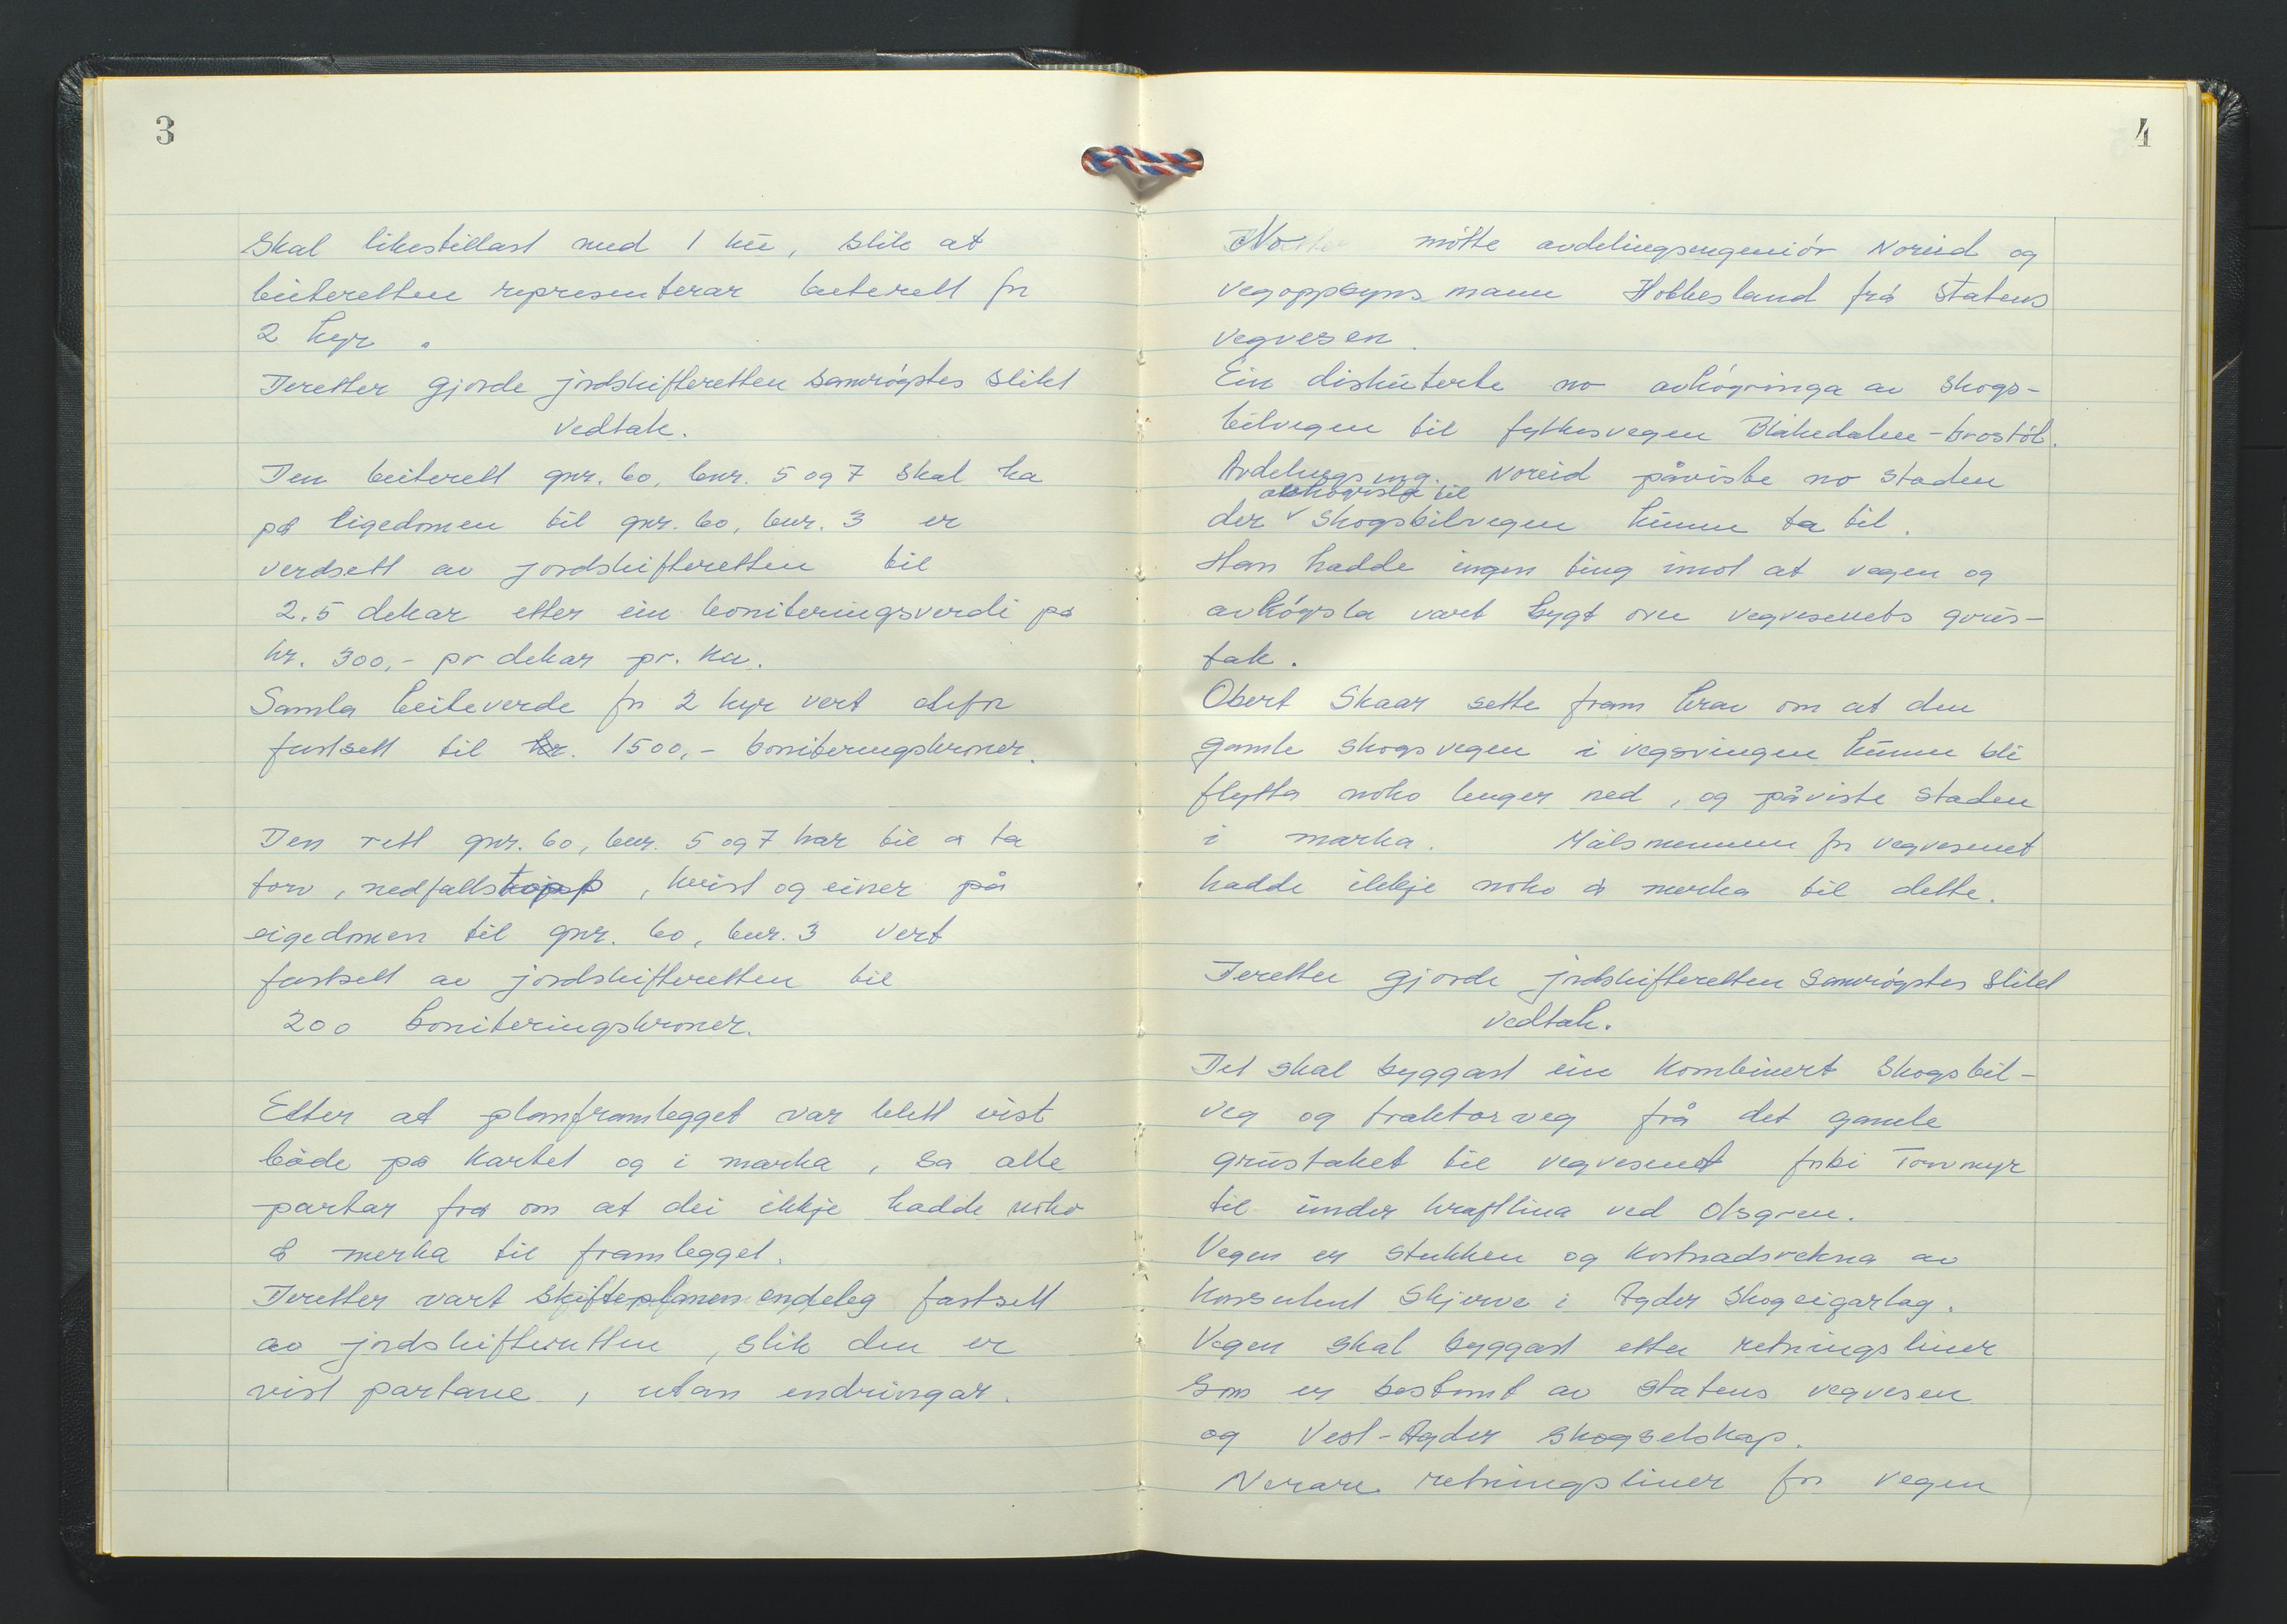 3
Skal likestillast med 1 ku, slik at
beiteretten representerar beiterett for
2 kyr.
Deretter gjorde jordskifteretten samrøystes slikt
vedtak.
Den beiterett gnr. 60, bnr. 5 og 7 skal ha
på eigedomen til gnr. 60, bnr. 3 er
verdsett av jordskifteretten til
2.5 dekar etter ein boniteringsverdi på
kr. 300,- pr dekar pr. ku.
Samla beiteverde for 2 kyr vert difor
fastsett til kr. 1500,- boniteringskroner.
Den rett gnr. 60, bnr. 5 og 7 har til å ta
torv, nedfallstopp, kvist og einer på
eigedomen til gnr. 60, bnr. 3 vert
fastsett av jordskifteretten til
200 boniteringskroner.
Etter at planframlegget var blitt vist
både på kartet og i marka, sa alle
partar frå om at dei ikkje hadde noko
å merka til framlegget.
Deretter vart skifteplanen endeleg fastsett
av jordskifteretten, slik den er
vist partane, utan endringar.
4
No møtte avdelingsingeniør Noreid og
vegoppsynsmann Hobbesland frå Statens
vegvesen.
Ein diskuterte no avkøyringa av skogs-
bilvegen til fylkesvegen -
Avdelingsing. Noreid påviste no staden
avkøyrsla til
der skogsbilvegen kunne ta til.
Han hadde ingen ting imot at vegen og
avkøyrsla vart bygt over vegvesenets grus-
tak.
Obert Skaar sette fram krav om at den
gamle skogsvegen i vegsvingen kunne bli
flytta noko lenger ned, og påviste staden
i marka. Målsmennene for vegvesenet
hadde ikkje noko å merka til dette.
Deretter gjorde jordskifteretten samrøystes slikt
vedtak.
Det skal byggast ein kombinert skogsbil-
veg og traktorveg frå det gamle
grustaket til vegvesenet forbi Torvmyr
til under kraftlina ved
Vegen er stukken og kostnadsrekna av
konsulent Skjerve i Agder Skogeigarlag.
Vegen skal byggast etter retningsliner
som er bestemt av Statens vegvesen
og Vest-Agder skogselskap.
Nerare retningsliner for vegen